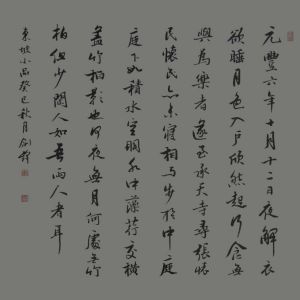 元豐六年十月十二日夜解衣
欲睡月色入戶欣然起行念無
與為樂者遂至承天寺尋張懷
民懷民亦未寢相與步於中庭
庭下如積水空明水中藻荇交橫
蓋竹柏影也何夜無月何處無竹
柏但少閑人如吾兩人者耳
東坡小品癸巳秋月